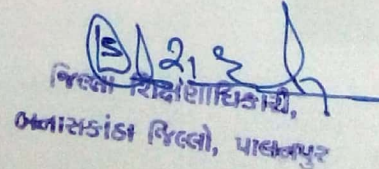 જિલ્લા શિક્ષણાધિકારી,
બનાસકાંઠા જિલ્લો, પાલનપુર